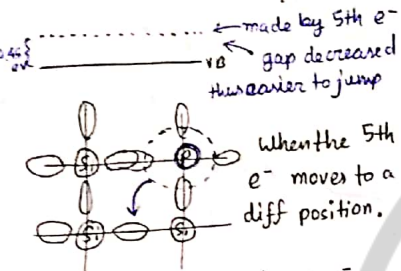 made by 5th e-
gap decreased
VB
thus easier to jump
Si
Si
Si
When the 5th
e- moves to a
diff position.